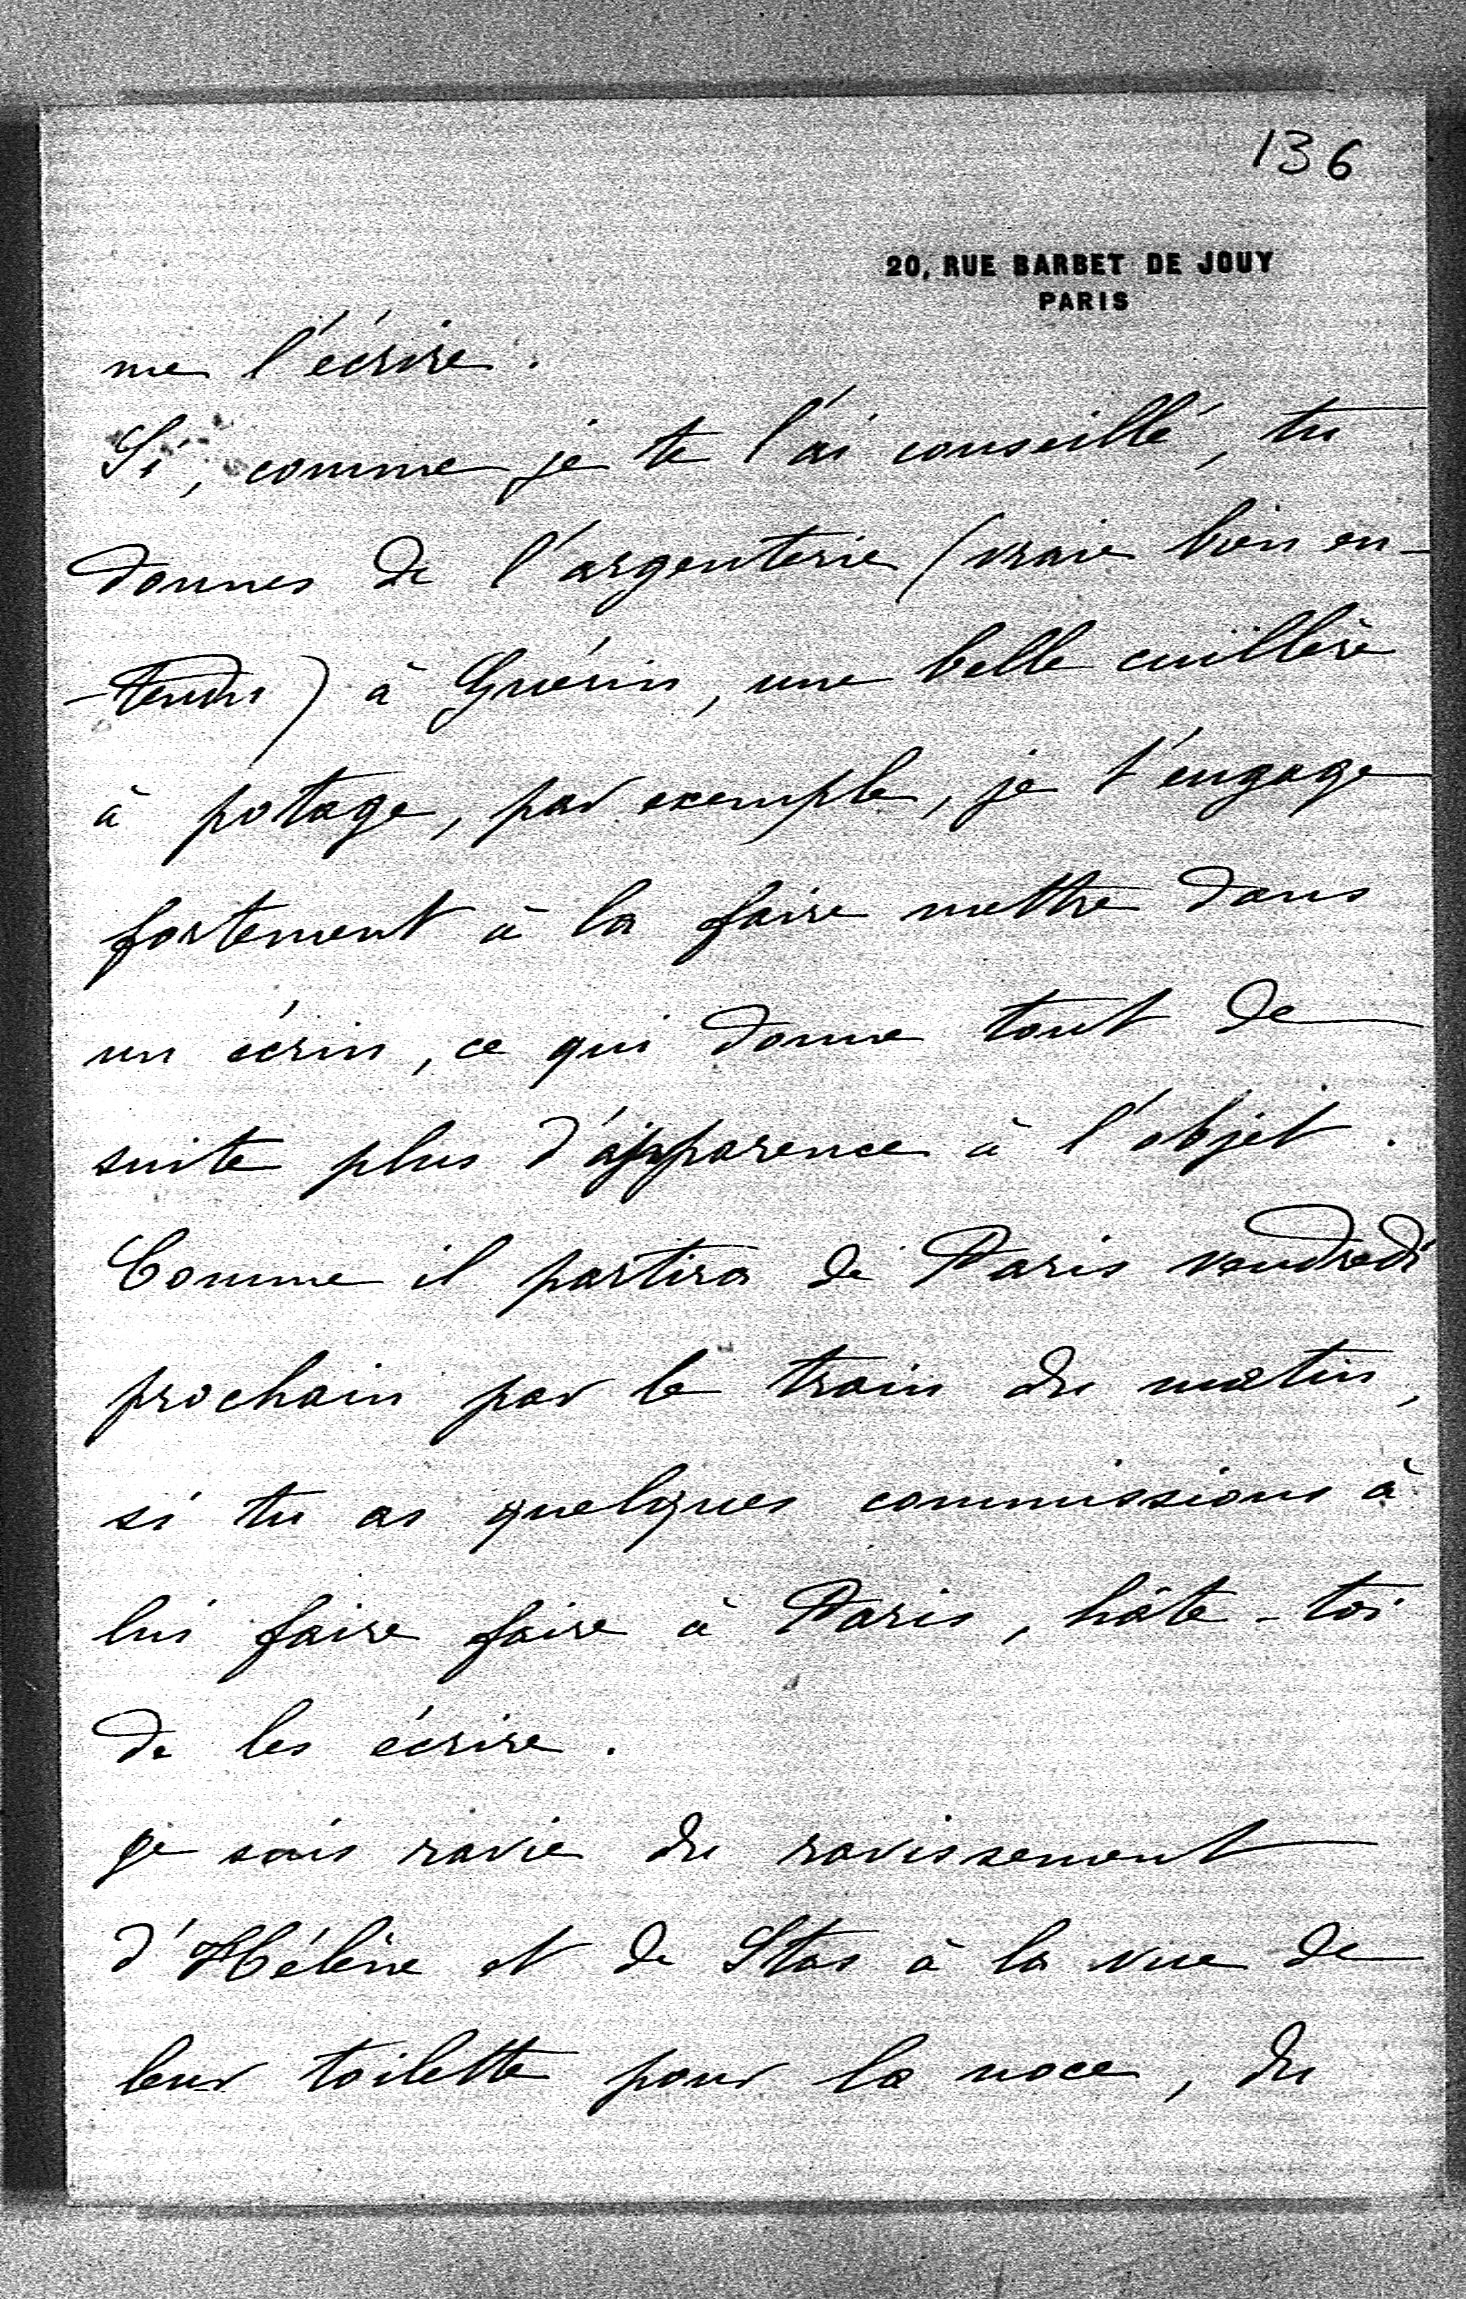 136
20, RUE BARBET DE JOUY
PARIS
me l'écrire.
Si, comme je te l'ai conseillé, tu
donnes de l'argenterie (vraie bien en-
-tendu) à Guérin, une belle cuillère
à potage, par exemple, je t'engage
fortement à la faire mettre dans
un écrin, ce qui donne tout de
suite plus d'apparence à l'objet.
Comme il partira de Paris vendredi
prochain par le train du matin,
si tu as quelques commissions à
lui faire faire à Paris, hâte-toi
de les écrire.
Je suis ravie du ravissement
d'Hélène et de Stas à la vue de
leur toilette pour la noce, du